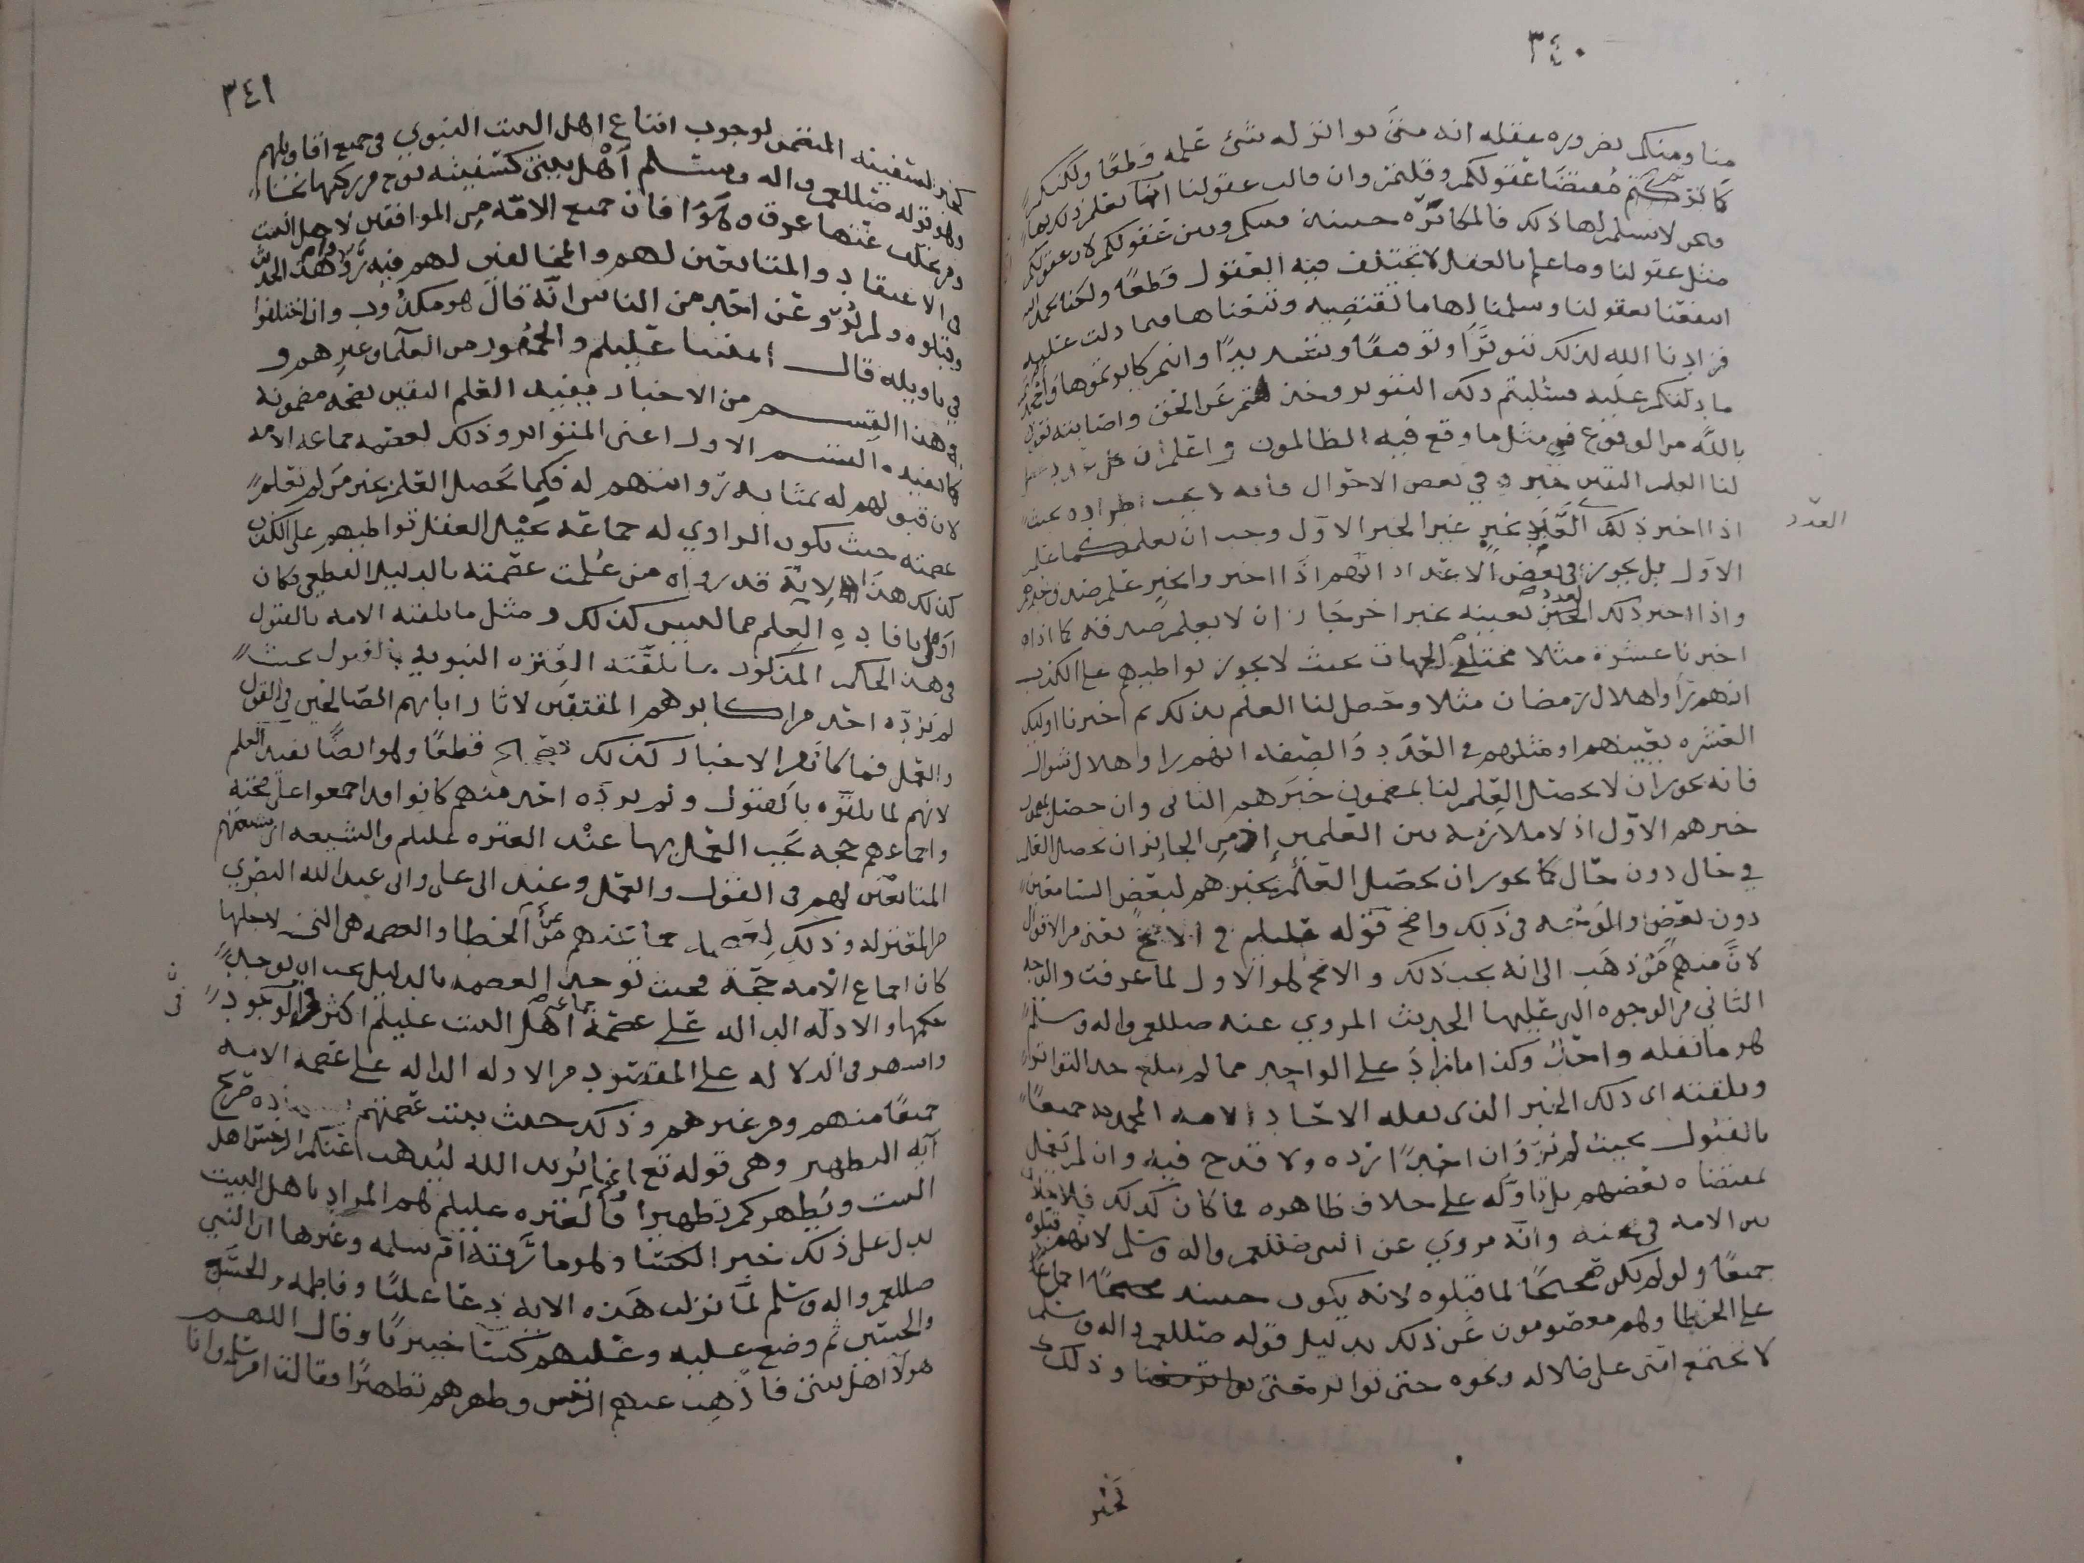 ٣٤٠
منا ومنكم بضرورة عقله انه متى تواتر له شئ علمه قطعًا ولكنكم
كابرتم مقتضا عقولكم وقلتم وان قالت عقولنا انها تعلم ذلك بها
ونحن لا نسلم لها ذلك فالمكابرة حسنة منكم وبين عقولكم لان عقولكم
مثل عقولنا وما علم بالعقل لا تختلف فيه العقول قطعًا ولكنا بحمد الله
اتبعنا عقولنا وسلمنا لها ما تقتضيه وتبعناها فيما دلت عليه
فزادنا الله لذلك تنويرًا وتوفيقًا وتسديدًا وانتم كابرتموها
ما دلتكم عليه فسلبتم ذلك التنوير وخذلتم عن الحق واصابته نعوذ
بالله من الوقوع في مثل ما وقع فيه الظالمون واعلم ان كل عدد يحصل
لنا العلم اليقين خبره في بعض الاحوال فانه لا يجب اطراده بحيث
اذا اخبر ذلك العدد غير الخبر الاول وجب ان نعلمه كما علم
العدد
الاول بل يجوز في بعض الاعداد انهم اذا اخبروا بخبر علم صدق خبرهم
واذا اخبر ذلك العدد بعينه خبرا اخر جاز ان لا يعلم صدقه كما اذا
اخبرنا عشرة مثلا مختلفي الجهات بحيث لا يجوز تواطيهم على الكذب
انهم راوا هلال رمضان مثلا وحصل لنا العلم بذلك ثم اخبرنا اوليك
العشره بعينهم او مثلهم في العدد والصفه انهم راوا هلال شوال
فانه يجوز ان لا يحصل العلم لنا بمضمون خبرهم الثاني وان حصل بمضمون
خبرهم الاول اذ لا ملازمه بين العلمين اذ من الجايز ان يحصل العلم
في حال دون حال كما يجوز ان يحصل العلم بخبرهم لبعض السامعين
دون بعض والوجه في ذلك واضح قوله عليلم في الاصح يعني من الاقوال
لان منهم من ذهب الى انه يجب ذلك والاصح هو الاول لما عرفت والوجه
الثاني من الوجوه التي عليها الحديث المروي عنه صللعم واله وسلم
هو ما نقله واحد وكذا ما زاد على الواحد مما لم يبلغ حد التواتر
وتلقته اى ذلك الخبر الذى نقله الاحاد الامه المحمديه جميعًا
بالقبول بحيث لم يرو ان احدًا رده ولا قدح فيه وان لم يعمل
بمقتضاه بعضهم بل تاوله على خلاف ظاهره فما كان كذلك فلا خلاف
بين الامه في صحته وانه مروي عن النبي صللعم واله وسلم لانهم قبلوه
جميعًا ولو لم يكن صحيحًا لما قبلوه لانه يكون حينئذ اجماعًا
على الخطا وهم معصومون عن ذلك بدليل قوله صللعم واله وسلم
لا تجتمع امتي على ضلاله ونحوه حتى تواتر معنى وذلك
كخبر
٣٤١
كخبر السفينة المتضمن لوجوب اتباع اهل البيت النبوي في جميع اقاويلهم
وهو قوله صللعم واله وسلم أهل بيتي كسفينة نوح من ركبها نجا
ومن تخلف عنها غرق وهوى فان جميع الامه من الموافقين لاهل البيت
في الاعتقاد والمتابعين لهم والمخالفين لهم فيه رووا هذا الحديث
وقبلوه ولم يرو عن احد من الناس انه قال هو مكذوب وان اختلفوا
في تاويله قال ائمتنا عليلم والجمهور من العلما وغيرهم و
وهذا القسم من الاخبار يفيد العلم اليقين بصحه مضمونه
كما يفيده القسم الاول اعنى المتواتر وذلك لعصمه جماعه الامه
لان قبولهم له بمثابه روايتهم له فكما يحصل العلم بخبر من لم تعلم
عصمته حيث يكون الراوي له جماعه يحيل العقل تواطيهم على الكذب
كذلك هذا لانه قد رواه من علمت عصمته بالدليل القطعي فكان
اولى بافاده العلم مما ليس كذلك ومثل ما تلقته الامه بالقبول
في هذا الحكم المذكور ما تلقته العتره النبويه بالقبول بحيث
لم يرده احد من اكابرهم المقتفين لاثار ابائهم الصالحين في القول
والعمل فما كان من الاخبار كذلك فصحيح قطعًا وهو ايضًا يفيد العلم
لانهم لما تلقوه بالقبول ولم يرده احد منهم كانوا قد اجمعوا على صحته
واجماعهم حجه يجب العمل بها عند العتره عليلم والشيعه اى شيعتهم
المتابعين لهم في القول والعمل وعند ابى على وابى عبد الله البصري
من المعتزله وذلك لعصمه جماعتهم عن الخطا والعصمه هي التي لاجلها
كان اجماع الامه حجة فحيث توجد العصمه بالدليل يجب ان يوجد
حكمها والادله الداله على عصمة جماعة اهل البيت عليلم اكثر في الوجود
واشهر في الدلاله على المقصود من الادله الداله على عصمه الامه
جميعًا منهم ومن غيرهم وذلك حيث ثبتت عصمتهم صريح
آيه التطهير وهي قوله تع انما يريد الله ليذهب عنكم الرجس اهل
البيت ويطهركم تطهيرا فالعتره عليلم هم المراد باهل البيت
يدل على ذلك خبر الكسا وهو ما روته ام سلمه وغيرها ان النبي
صللعم واله وسلم لما نزلت هذه الايه دعا عليًا وفاطمه والحسن
والحسين ثم وضع عليه وعليهم كسًا خيبريًا وقال اللهم
هولا اهل بيتي فاذهب عنهم الرجس وطهرهم تطهيرًا فقالت ام سلمه وانا